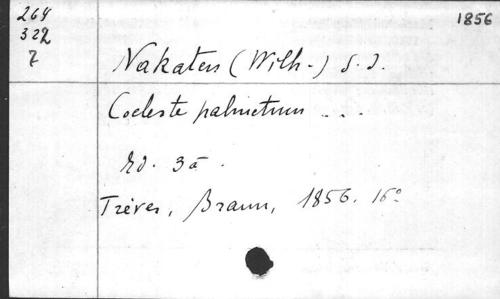 264
322
7
1856
Nakaten (Wilh.) S. J.
Coeleste palmetum ...
Ed. 3a.
Trèves, Braun, 1856. 16o